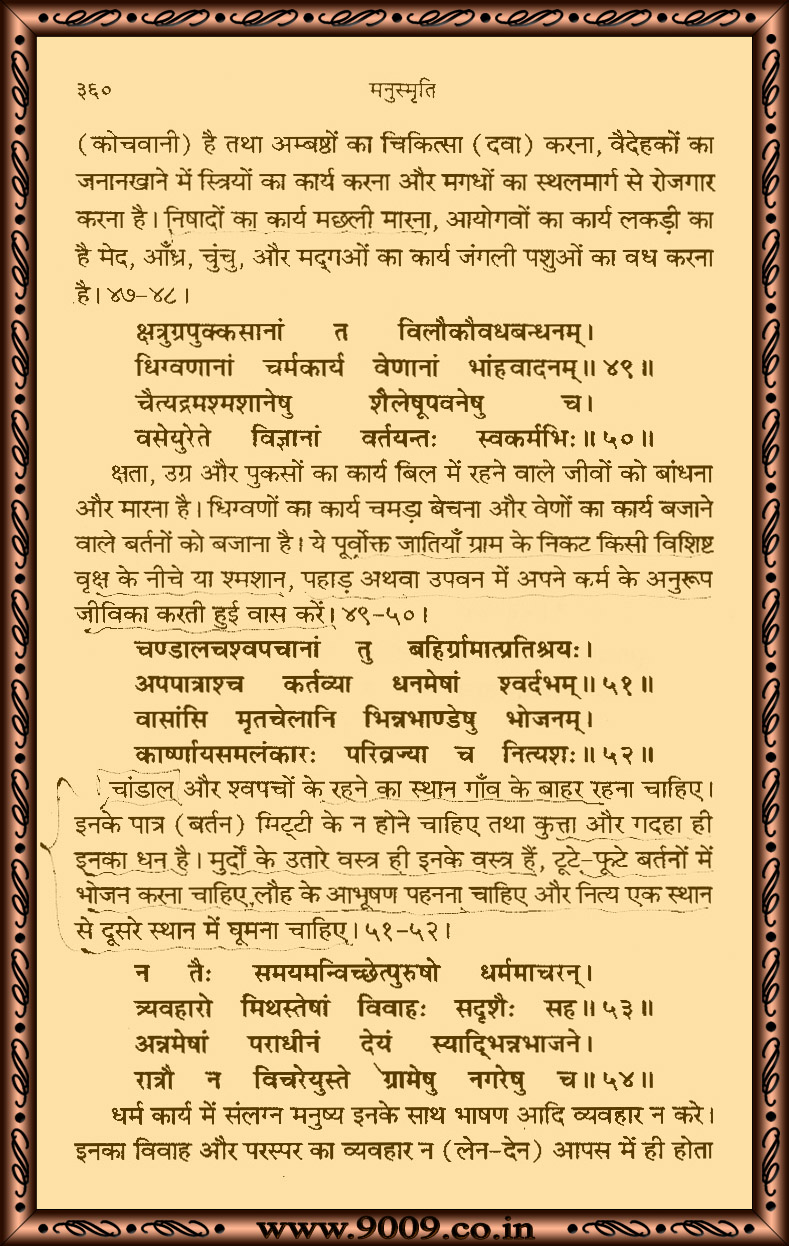 ३६०
मनुस्मृति
(कोचवानी) है तथा अम्बष्ठों का चिकित्सा (दवा) करना, वैदेहकों का
जनानखाने में स्त्रियों का कार्य करना और मगधों का स्थलमार्ग से रोजगार
करना है। निषादों का कार्य मछली मारना, आयोगवों का कार्य लकड़ी का
है मेद, आँध्र, चुंचु, और मद्गओं का कार्य जंगली पशुओं का वध करना
है। ४७-४८।
क्षत्रुग्रपुक्कसानां त विलौकौवधबन्धनम्।
धिग्वणानां चर्मकार्य वेणानां भांहवादनम्॥ ४९॥
चैत्यद्रमश्मशानेषु शैलेषूपवनेषु च।
वसेयुरेते विज्ञानां वर्तयन्तः स्वकर्मभिः॥ ५०॥
क्षता, उग्र और पुकसों का कार्य बिल में रहने वाले जीवों को बांधना
और मारना है। धिग्वणों का कार्य चमड़ा बेचना और वेणों का कार्य बजाने
वाले बर्तनों को बजाना है। ये पूर्वोक्त जातियाँ ग्राम के निकट किसी विशिष्ट
वृक्ष के नीचे या श्मशान, पहाड़ अथवा उपवन में अपने कर्म के अनुरूप
जीविका करती हुई वास करें। ४९-५०।
चण्डालचश्वपचानां तु बहिर्ग्रामात्प्रतिश्रयः।
अपपात्राश्च कर्तव्या धनमेषां श्वर्दभम्॥ ५१॥
वासांसि मृतचेलानि भिन्नभाण्डेषु भोजनम्।
कार्ष्णायसमलंकारः परिव्रज्या च नित्यशः॥ ५२॥
चांडाल और श्वपचों के रहने का स्थान गाँव के बाहर रहना चाहिए।
इनके पात्र (बर्तन) मिट्टी के न होने चाहिए तथा कुत्ता और गदहा ही
इनका धन है। मुर्दों के उतारे वस्त्र ही इनके वस्त्र हैं, टूटे-फूटे बर्तनों में
भोजन करना चाहिए, लौह के आभूषण पहनना चाहिए और नित्य एक स्थान
से दूसरे स्थान में घूमना चाहिए। ५१-५२।
न तैः समयमन्विच्छेत्पुरुषो धर्ममाचरन्।
त्र्यवहारो मिथस्तेषां विवाहः सदृशैः सह॥ ५३॥
अन्नमेषां पराधीनं देयं स्याद्भिन्नभाजने।
रात्रौ न विचरेयुस्ते ग्रामेषु नगरेषु च॥ ५४॥
धर्म कार्य में संलग्न मनुष्य इनके साथ भाषण आदि व्यवहार न करे।
इनका विवाह और परस्पर का व्यवहार न (लेन-देन) आपस में ही होता
www.9009.co.in